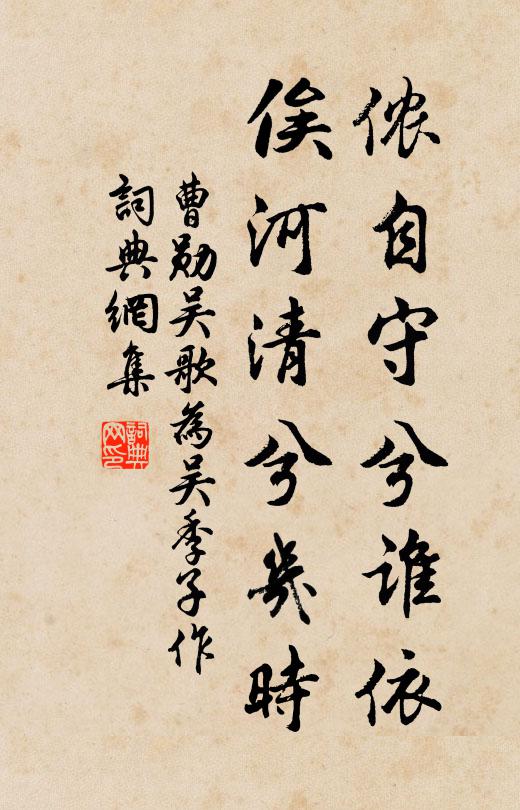 侬自守兮谁依
俟河清兮几時
曹勋吴歌為吴季子作
詞典網集
詞典网印